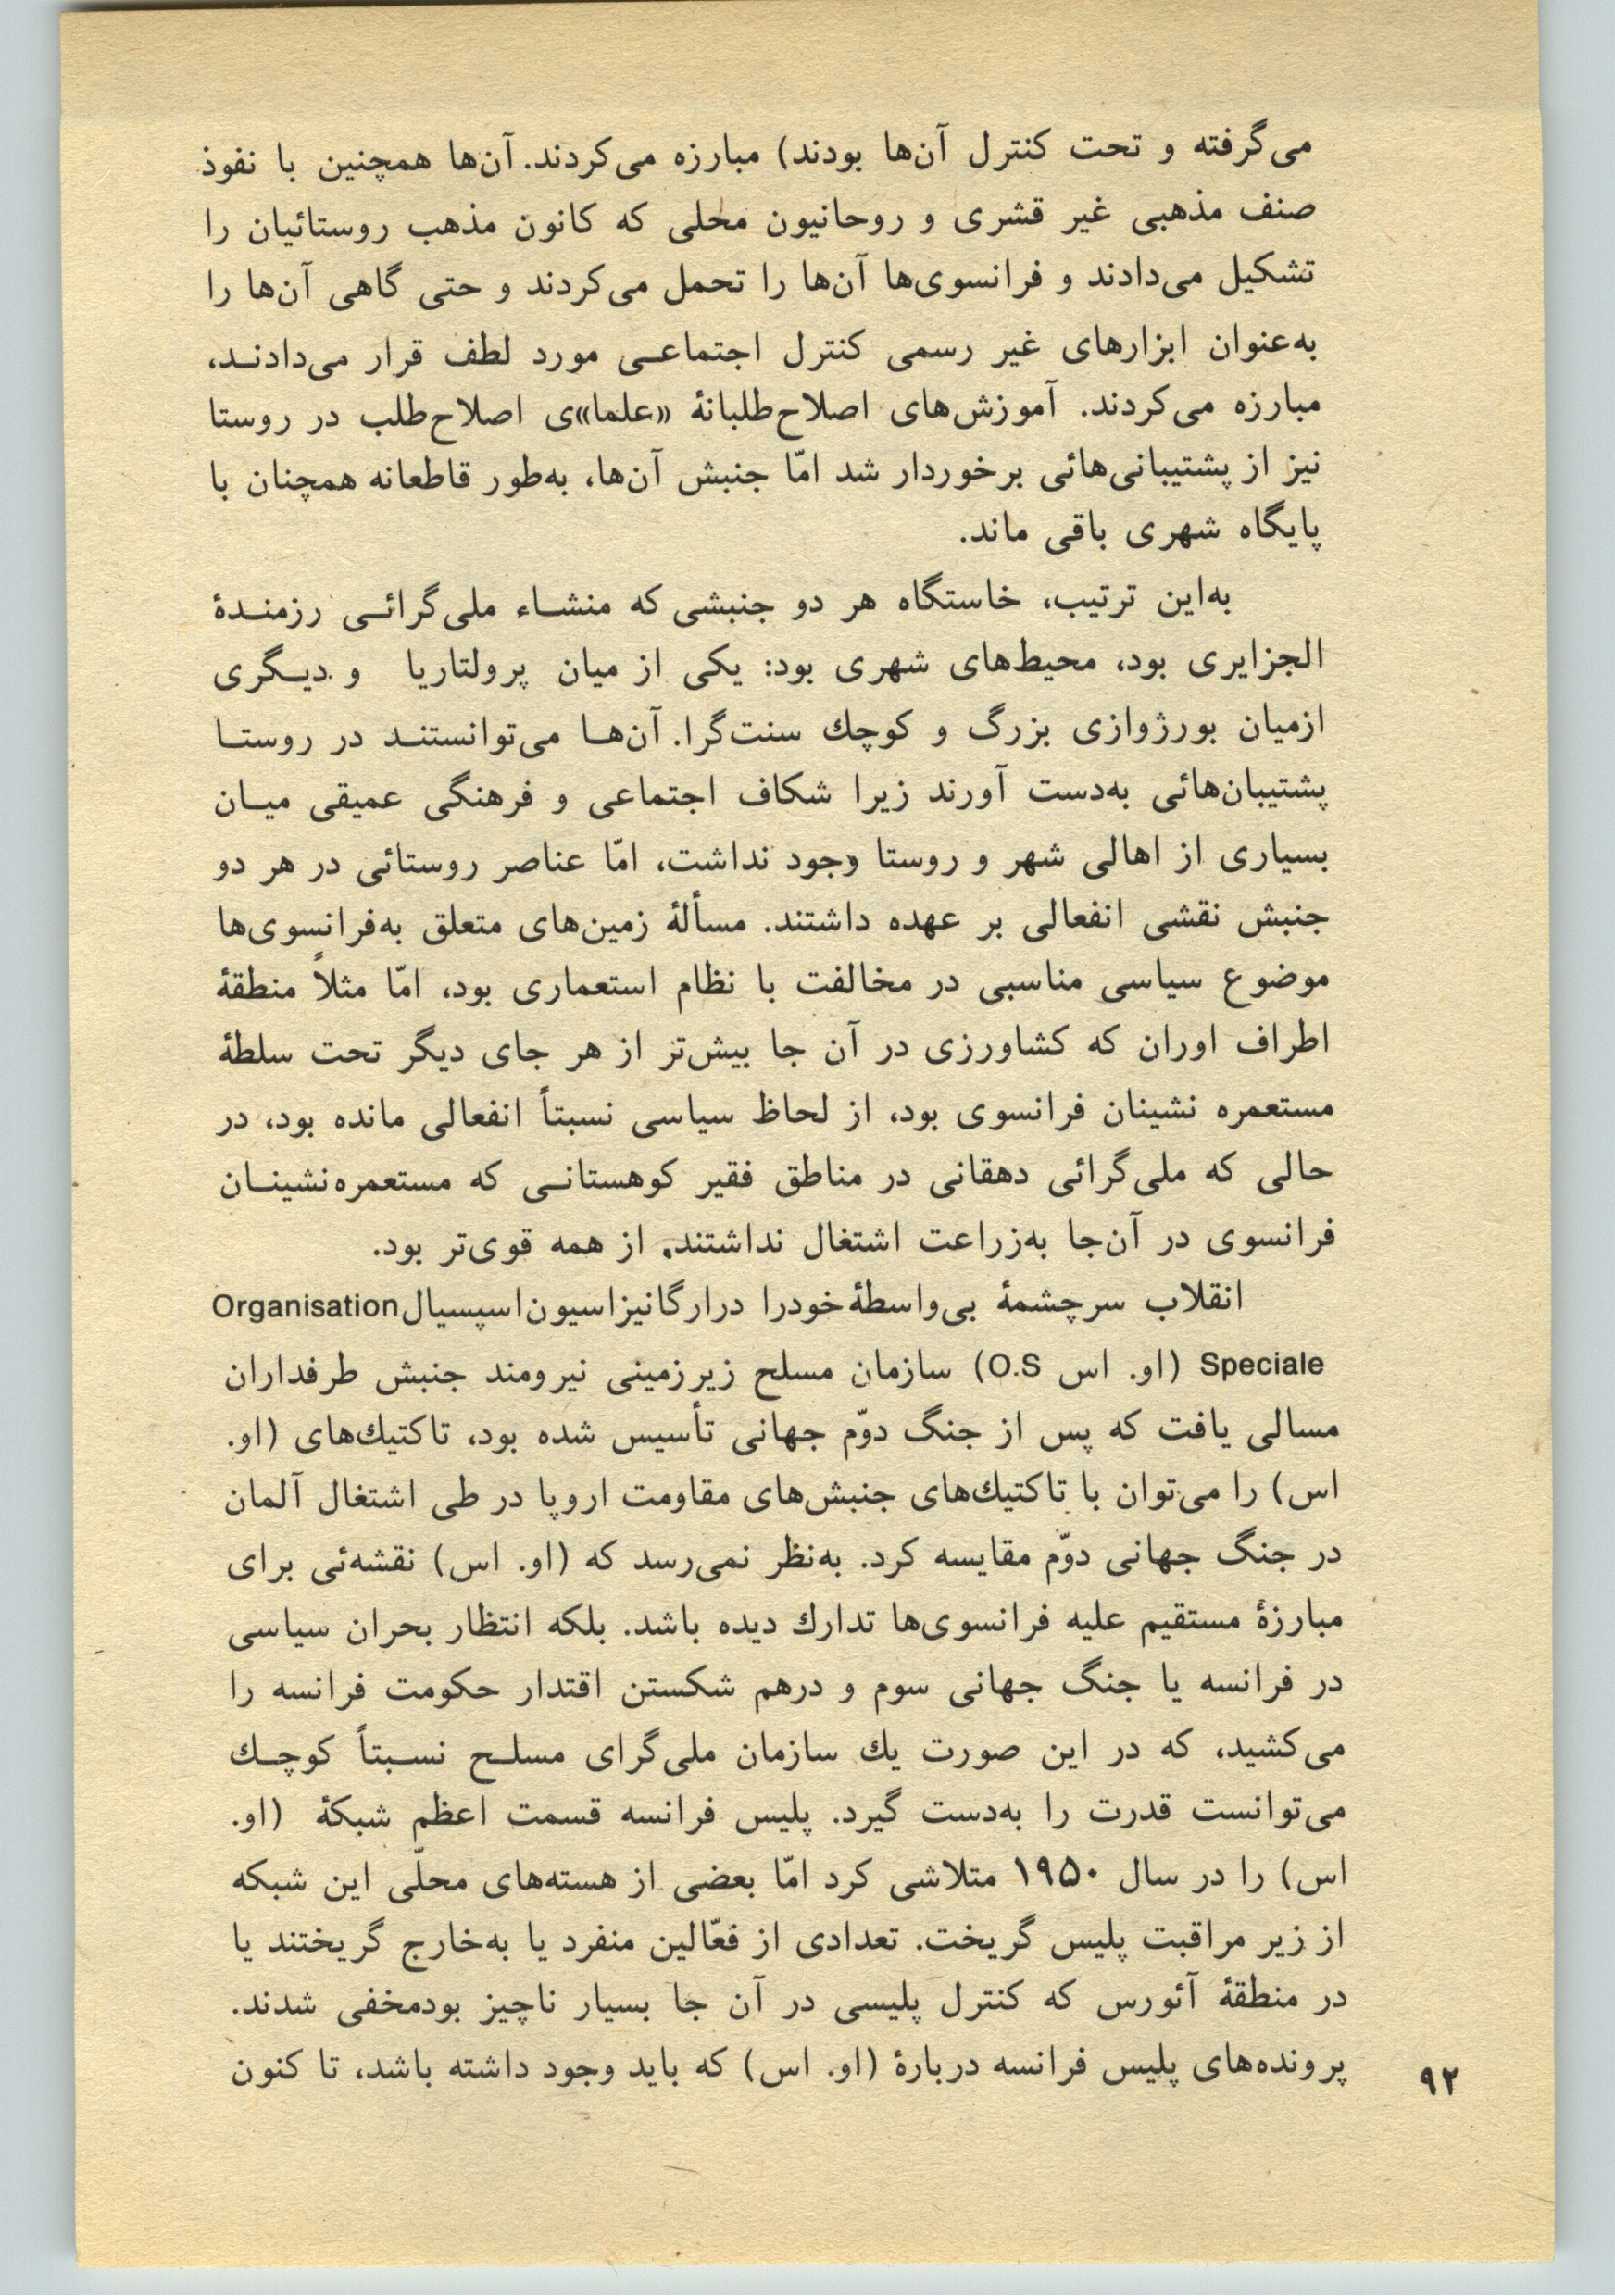 می‌گرفته و تحت کنترل آن‌ها بودند) مبارزه می‌کردند. آن‌ها همچنین با نفوذ
صنف مذهبی غیر قشری و روحانیون محلی که کانون مذهب روستائیان را
تشکیل می‌دادند و فرانسوی‌ها آن‌ها را تحمل می‌کردند و حتی گاهی آن‌ها را
به‌عنوان ابزارهای غیر رسمی کنترل اجتماعی مورد لطف قرار می‌دادند،
مبارزه می‌کردند. آموزش‌های اصلاح‌طلبانهٔ «علما»ی اصلاح‌طلب در روستا
نیز از پشتیبانی‌هائی برخوردار شد امّا جنبش آن‌ها، به‌طور قاطعانه همچنان با
پایگاه شهری باقی ماند.
به‌این ترتیب، خاستگاه هر دو جنبشی که منشاء ملی‌گرائی رزمندهٔ
الجزایری بود، محیط‌های شهری بود: یکی از میان پرولتاریا و دیگری
ازمیان بورژوازی بزرگ و کوچك سنت‌گرا. آن‌ها می‌توانستند در روستا
پشتیبان‌هائی به‌دست آورند زیرا شکاف اجتماعی و فرهنگی عمیقی میان
بسیاری از اهالی شهر و روستا وجود نداشت، امّا عناصر روستائی در هر دو
جنبش نقشی انفعالی بر عهده داشتند. مسألهٔ زمین‌های متعلق به‌فرانسوی‌ها
موضوع سیاسی مناسبی در مخالفت با نظام استعماری بود، امّا مثلاً منطقهٔ
اطراف اوران که کشاورزی در آن جا بیش‌تر از هر جای دیگر تحت سلطهٔ
مستعمره نشینان فرانسوی بود، از لحاظ سیاسی نسبتاً انفعالی مانده بود، در
حالی که ملی‌گرائی دهقانی در مناطق فقیر کوهستانی که مستعمره‌نشینان
فرانسوی در آن‌جا به‌زراعت اشتغال نداشتند. از همه قوی‌تر بود.
انقلاب سرچشمهٔ بی‌واسطهٔ خودرا درارگانیزاسیون‌اسپسیال Organisation
Speciale (او. اس O.S) سازمان مسلح زیرزمینی نیرومند جنبش طرفداران
مسالی یافت که پس از جنگ دوّم جهانی تأسیس شده بود، تاکتیك‌های (او.
اس) را می‌توان با تاکتیك‌های جنبش‌های مقاومت اروپا در طی اشتغال آلمان
در جنگ جهانی دوّم مقایسه کرد. به‌نظر نمی‌رسد که (او. اس) نقشه‌ئی برای
مبارزهٔ مستقیم علیه فرانسوی‌ها تدارك دیده باشد. بلکه انتظار بحران سیاسی
در فرانسه یا جنگ جهانی سوم و درهم شکستن اقتدار حکومت فرانسه را
می‌کشید، که در این صورت یك سازمان ملی‌گرای مسلح نسبتاً کوچك
می‌توانست قدرت را به‌دست گیرد. پلیس فرانسه قسمت اعظم شبکهٔ (او.
اس) را در سال ۱۹۵۰ متلاشی کرد امّا بعضی از هسته‌های محلّی این شبکه
از زیر مراقبت پلیس گریخت. تعدادی از فعّالین منفرد یا به‌خارج گریختند یا
در منطقهٔ آئورس که کنترل پلیسی در آن جا بسیار ناچیز بودمخفی شدند.
پرونده‌های پلیس فرانسه دربارهٔ (او. اس) که باید وجود داشته باشد، تا کنون
۹۲